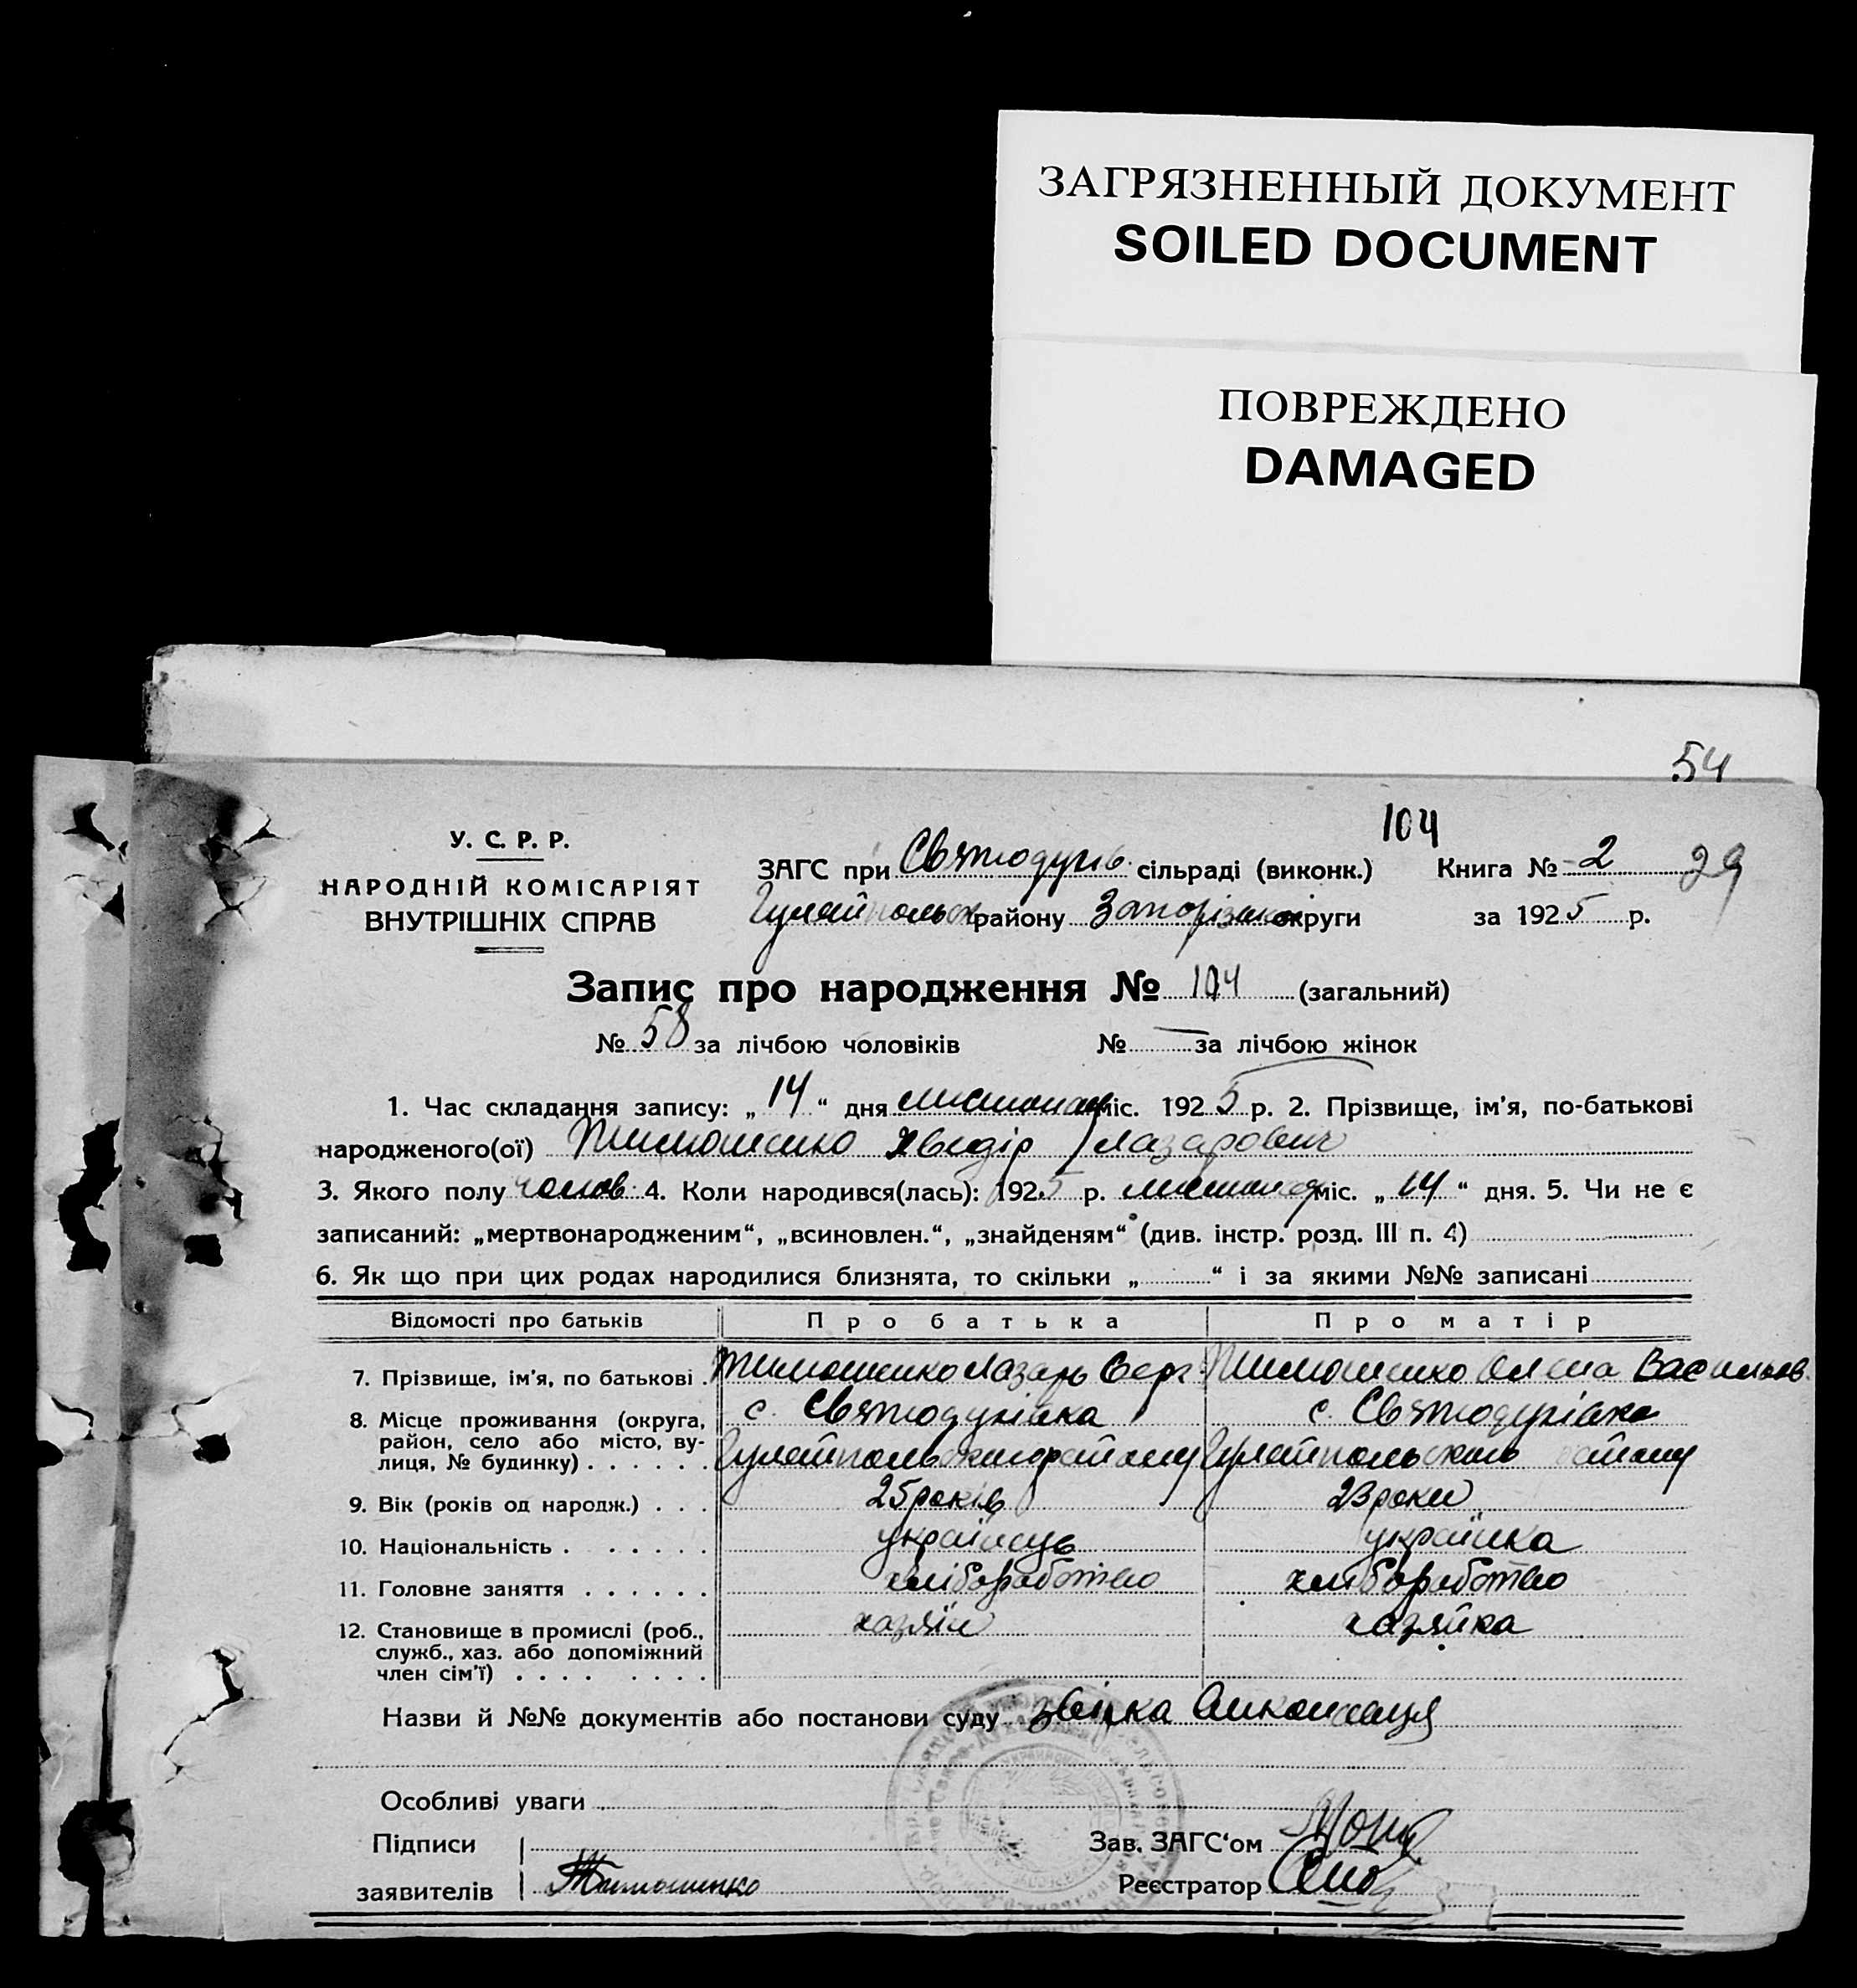 ЗАГРЯЗНЕННЫЙ ДОКУМЕНТ
SOILED DOCUMENT
ПОВРЕЖДЕНО
DAMAGED
54
104
У. С. Р. Р.
НАРОДНІЙ КОМІСАРІЯТ
ВНУТРІШНІХ СПРАВ
ЗАГС при Святодухів. сільраді (виконк.) Книга № 2 29
Гуляйпольськ району Запорізької округи за 1925 р.
Запис про народження № 104 (загальний)
№ 58 за лічбою чоловіків № — за лічбою жінок
1. Час складання запису: „ 14 “ дня листопад міс. 1925 р. 2. Прізвище, ім'я, по-батькові
народженого(ої) Тимошенко Хведір Лазарович
3. Якого полу чолов. 4. Коли народився(лась): 1925 р. листопад міс. „ 14 “ дня. 5. Чи не є
записаний: „мертвонародженим“, „всиновлен.“, „знайденям“ (див. інстр. розд. III п. 4)
6. Як що при цих родах народилися близнята, то скільки „ “ і за якими №№ записані
Відомості про батьків Про батька Про матір
7. Прізвище, ім'я, по батькові . Тимошенко Лазарь Серг. Тимошенко Олена Васильов.
8. Місце проживання (округа, с. Святодухівка с. Святодухівка
район, село або місто, ву-
лиця, № будинку) . . . . . . Гуляйпольського району Гуляйпольского району
9. Вік (років од народж.) . . . 25 років 23 роки
10. Національність . . . . . . українець українка
11. Головне заняття . . . . . . хліборобство хліборобство
12. Становище в промислі (роб., хазяїн хазяйка
служб., хаз. або допоміжний
член сім'ї) . . . . . . . .
Назви й №№ документів або постанови суду
Особливі уваги
Підписи Зав. ЗАГС‘ом
заявителів Тимошенко Реєстратор